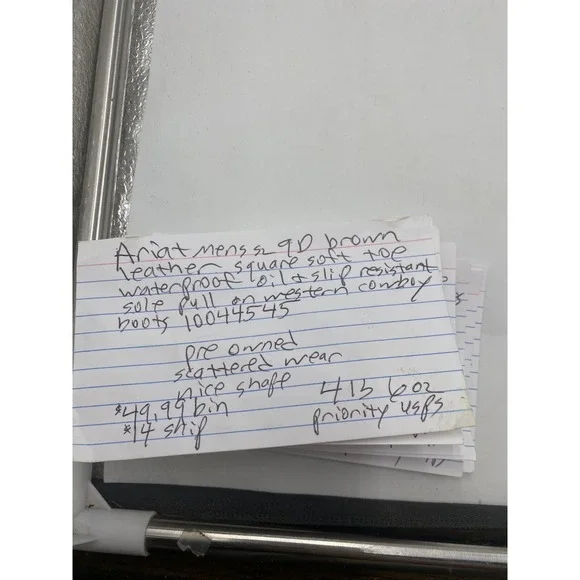 Ariat mens sz 9D brown
leather square soft toe
waterproof oil + slip resistant
sole pull on western cowboy
boots 10044545
pre owned
scattered wear
nice shape
$49.99 bin
$14 ship
4 lb 6 oz
priority usps